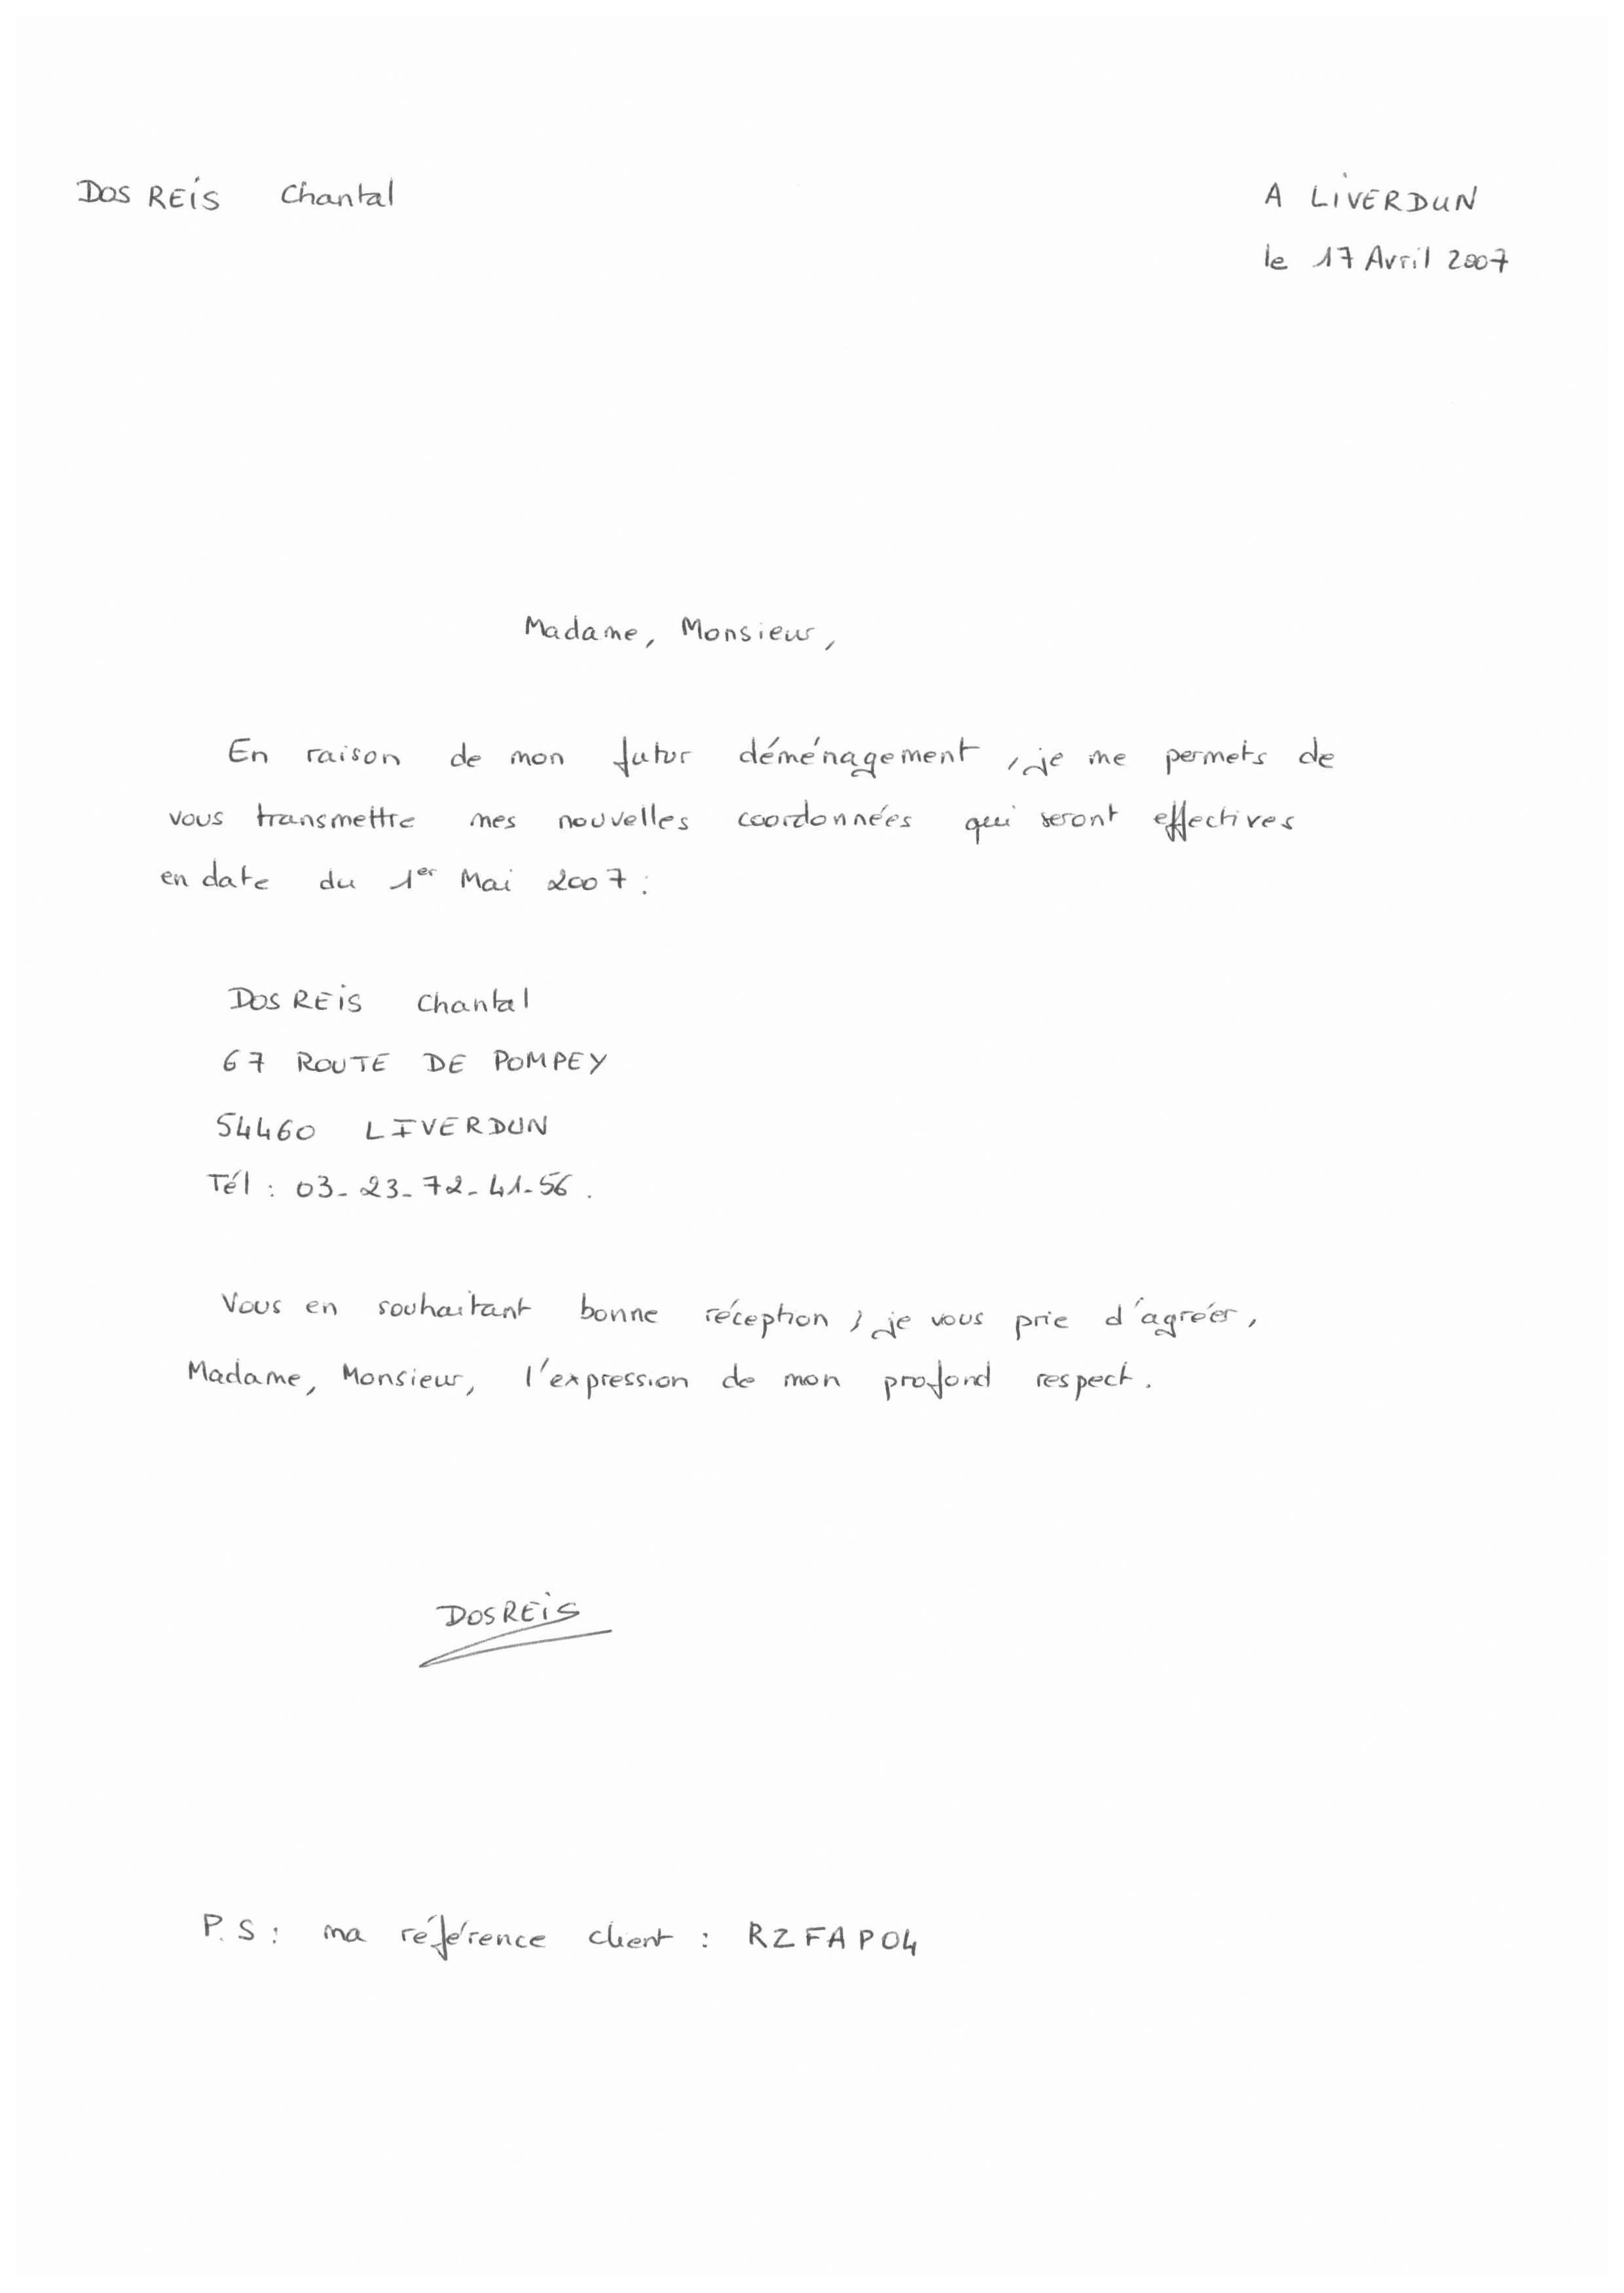 DOS REIS Chantal
A LIVERDUN
le 17 Avril 2007
Madame, Monsieur,
En raison de mon futur déménagement, je me permets de
vous transmettre mes nouvelles coordonnées qui seront effectives
en date du 1er Mai 2007 :
DOS REIS Chantal
67 ROUTE DE POMPEY
54460 LIVERDUN
Tél : 03-23-72-41-56.
Vous en souhaitant bonne réception, je vous prie d'agréer,
Madame, Monsieur, l'expression de mon profond respect.
DOS REIS
P.S : ma référence client : RZFAP04